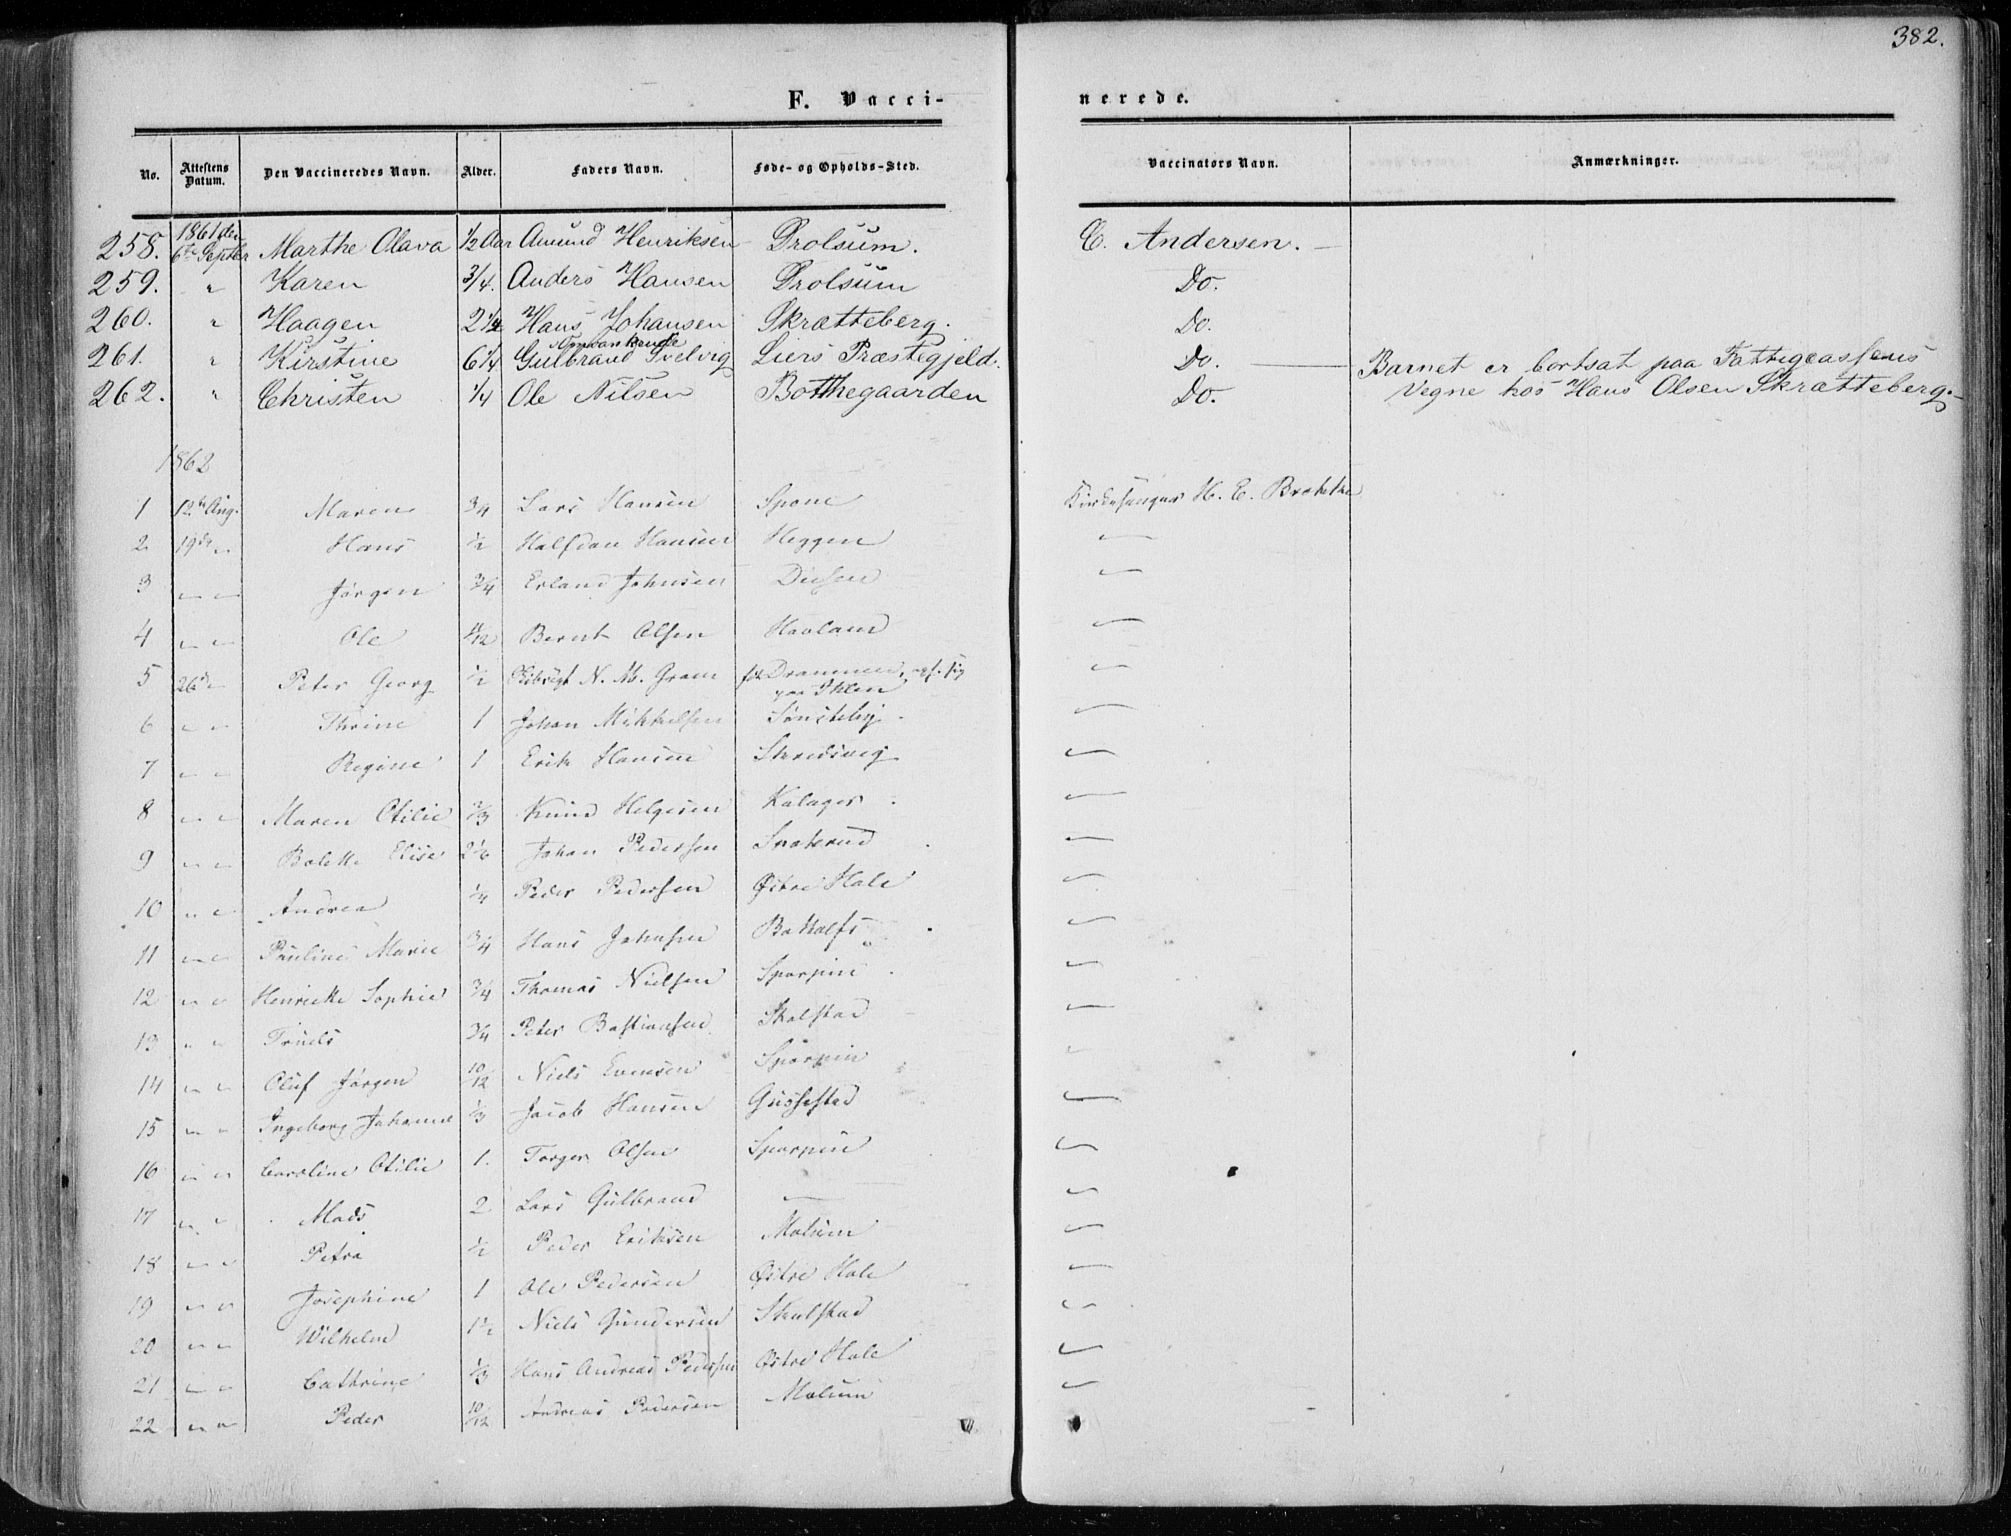 382.
F. Vacci-
nerede.
No. Attestens Datum. Den Vaccineredes Navn. Alder. Faders Navn. Føde- og Opholds-Sted. Vaccinators Navn. Anmærkninger.
258. 1861 den 6te Septbr Marthe Olava 1/2 Aar Amund Henriksen Prolsum. C. Andersen. —
259. " Karen 3/4. Anders Hansen Prolsum Do.
260. " Haagen 2 1/4 Hans Johansen Skrætteberg. Do.
261. " Kirstine 6 1/4 Omvankende Gulbrand Svelvig Liers Præstegjeld. Do. — Barnet er bortsat paa Fattigcassens
262. " Christen 1/4 Ole Nilsen Botthegaarden Do. Vegne hos Hans Olsen Skrætteberg.—
1862
1 12te Aug. Maren 3/4 Lars Hansen Spone Kirkesanger H. E.
2 19de " Hans 1/2 Halfdan Hansen Heggen —
3 " " Jørgen 3/4 Erland Johnsen —
4 " " Ole Bernt Olsen Haaland —
5 26de Peter Georg 1/2 N. M. Gram Drammen, paa Ihlen —
6 " " Thrine 1 Johan Mikkelsen Sønsteby —
7 " " Regine 1 Erik Hansen Skredsvig —
8 " " Maren Otilie 2/3 Knud Helgesen Kalager —
9 " " Bolette Elise 2 1/6 Johan Pedersen Snaterud —
10 " " Andrea 1/4 Peder Pedersen Østre Hole —
11 " " Pauline Marie 3/4 Hans Johnsen —
12 " " Henrikke Sophie 3/4 Thomas Nielsen Sparpin —
13 " " Truels 3/4 Peter Bastiansen Skalstad —
14 " " Oluf Jørgen 10/12 Niels Evensen Sparpin —
15 " " Ingeborg Johanne 1/3 Jacob Hansen Gussestad —
16 " " Caroline Otilie 1. Torger Olsen Sparpin —
17 " " Mads 2 Lars Gulbrand — —
18 " " Petra 1/2 Peder Eriksen Molum —
19 " " Josephine 1 Ole Pedersen Østre Hole —
20 " " Wilhelm 1 1/2 Niels Gundersen Skalstad —
21 " " Cathrine 1/3 Hans Andreas Pedersen Østre Hole —
22 " " Peder 10/12 Andreas Pedersen Molum —